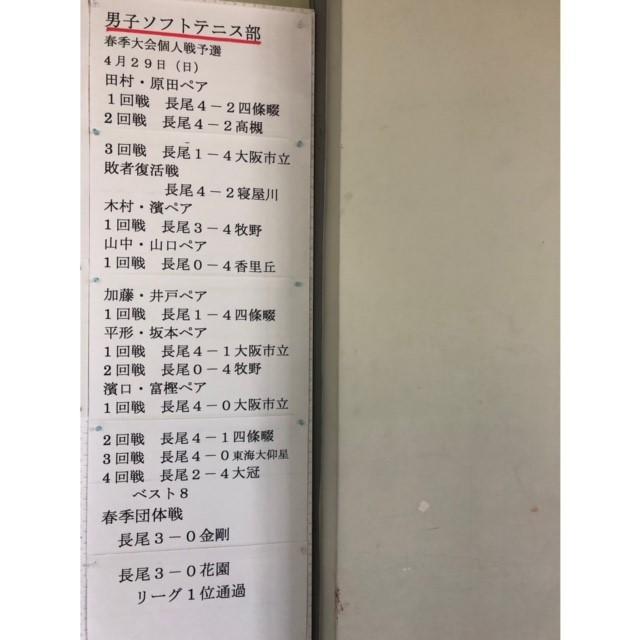 男子ソフトテニス部
春季大会個人戦予選
4月29日（日）
田村・原田ペア
1回戦　長尾4－2四條畷
2回戦　長尾4－2高槻
3回戦　長尾1－4大阪市立
敗者復活戦
長尾4－2寝屋川
木村・濱ペア
1回戦　長尾3－4牧野
山中・山口ペア
1回戦　長尾0－4香里丘
加藤・井戸ペア
1回戦　長尾1－4四條畷
平形・坂本ペア
1回戦　長尾4－1大阪市立
2回戦　長尾0－4牧野
濱口・富樫ペア
1回戦　長尾4－0大阪市立
2回戦　長尾4－1四條畷
3回戦　長尾4－0東海大仰星
4回戦　長尾2－4大冠
ベスト8
春季団体戦
長尾3－0金剛
長尾3－0花園
リーグ1位通過